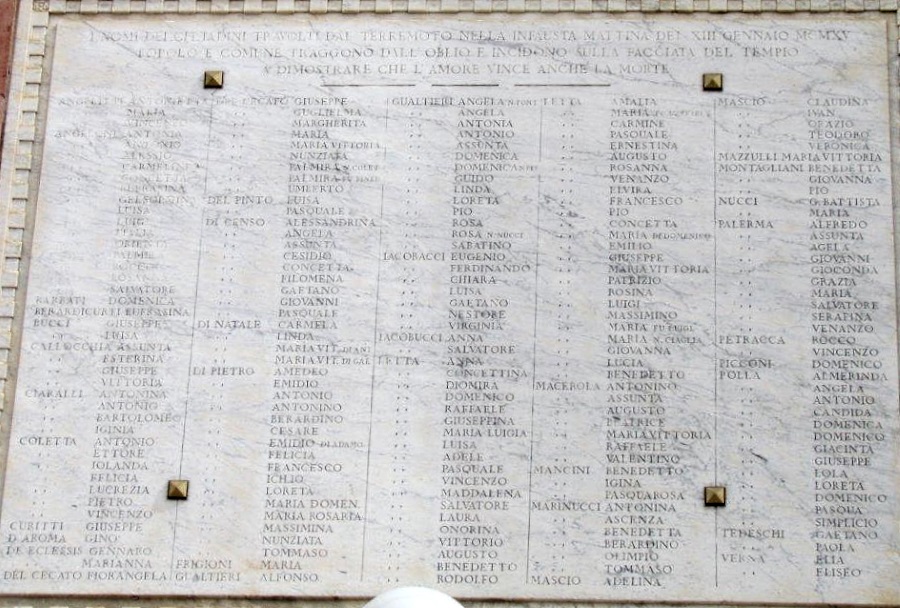 I NOMI DEI CITTADINI TRAVOLTI DAL TERREMOTO NELLA INFAUSTA MATTINA DEL XIII GENNAIO MCMXV
POPOLO E COMUNE TRAGGONO DALL'OBLIO E INCIDONO SULLA FACCIATA DEL TEMPIO
A DIMOSTRARE CHE L'AMORE VINCE ANCHE LA MORTE
MARIA
ANTONIO
ALESSIO
CARMELINA
CONCETTA
LUISA
LUIGI
ORIENTA
ROCCO
SALVATORE
BARBATI DOMENICA
BERARDICURTI EUFRASINA
BUCCI GIUSEPPE
" LUISA
CALLOCCHIA ASSUNTA
" ESTERINA
" GIUSEPPE
" VITTORIA
CIARALLI ANTONINA
" ANTONIO
" BARTOLOMEO
" IGINIA
COLETTA ANTONIO
" ETTORE
" IOLANDA
" FELICIA
" LUCREZIA
" PIETRO
" VINCENZO
CURITTI GIUSEPPE
D'AROMA GINO
DE ECLESSIS GENNARO
" MARIANNA
DEL CECATO FIORANGELA
DEL CECATO GIUSEPPE
" GUGLIELMA
" MARGHERITA
" MARIA
" MARIA VITTORIA
" NUNZIATA
" PALMIRA
" PALMIRA
" UMBERTO
DEL PINTO LUISA
" PASQUALE
DI CENSO ALESSANDRINA
" ANGELA
" ASSUNTA
" CESIDIO
" CONCETTA
" FILOMENA
" GAETANO
" GIOVANNI
" PASQUALE
DI NATALE CARMELA
" LINDA
" MARIA VIT. DI ANT
" MARIA VIT. DI GAE
DI PIETRO AMEDEO
" EMIDIO
" ANTONIO
" ANTONINO
" BERARDINO
" CESARE
" EMIDIO DI ADAMO
" FELICIA
" FRANCESCO
" ICILIO
" LORETA
" MARIA DOMEN.
" MARIA ROSARIA
" MASSIMINA
" NUNZIATA
" TOMMASO
FRIGIONI MARIA
GUALTIERI ALFONSO
GUALTIERI ANGELA
" ANGELA
" ANTONIA
" ANTONIO
" ASSUNTA
" DOMENICA
" DOMENICA
" GUIDO
" LINDA
" LORETA
" PIO
" ROSA
" ROSA N. NUCCI
" SABATINO
IACOBACCI EUGENIO
" FERDINANDO
" CHIARA
" LUISA
" GAETANO
" NESTORE
" VIRGINIA
IACOBUCCI ANNA
" SALVATORE
LETTA ANNA
" CONCETTINA
" DIOMIRA
" DOMENICO
" RAFFAELE
" GIUSEPPINA
" MARIA LUIGIA
" LUISA
" ADELE
" PASQUALE
" VINCENZO
" MADDALENA
" SALVATORE
" LAURA
" ONORINA
" VITTORIO
" AUGUSTO
" BENEDETTO
" RODOLFO
LETTA AMALIA
" MARIA
" CARMINE
" PASQUALE
" ERNESTINA
" AUGUSTO
" ROSANNA
" VENANZO
" ELVIRA
" FRANCESCO
" PIO
" CONCETTA
" MARIA DI DOMENICO
" EMILIO
" GIUSEPPE
" MARIA VITTORIA
" PATRIZIO
" ROSINA
" LUIGI
" MASSIMINO
" MARIA FU LUIGI
" MARIA N. CIAGLIA
" GIOVANNA
" LUCIA
" BENEDETTO
MACEROLA ANTONINO
" ASSUNTA
" AUGUSTO
" BEATRICE
" MARIA VITTORIA
" RAFFAELE
" VALENTINO
MANCINI BENEDETTO
" IGINA
" PASQUAROSA
MARINUCCI ANTONINA
" ASCENZA
" BENEDETTA
" BERARDINO
" OLIMPIO
" TOMMASO
MASCIO ADELINA
MASCIO CLAUDINA
" IVAN
" ORAZIO
" TEODORO
" VERONICA
MAZZULLI MARIA VITTORIA
MONTAGLIANI BENEDETTA
" GIOVANNA
" PIO
NUCCI G. BATTISTA
" MARIA
PALERMA ALFREDO
" ASSUNTA
" AGELA
" GIOVANNI
" GIOCONDA
" GRAZIA
" MARIA
" SALVATORE
" SERAFINA
" VENANZO
PETRACCA ROCCO
" VINCENZO
PICCONI DOMENICO
POLLA ALMERINDA
" ANGELA
" ANTONIO
" CANDIDA
" DOMENICA
" DOMENICO
" GIACINTA
" GIUSEPPE
" LOLA
" LORETA
" DOMENICO
" PASQUA
" SIMPLICIO
TEDESCHI GAETANO
" PAOLA
VERNA ELIA
" ELISEO